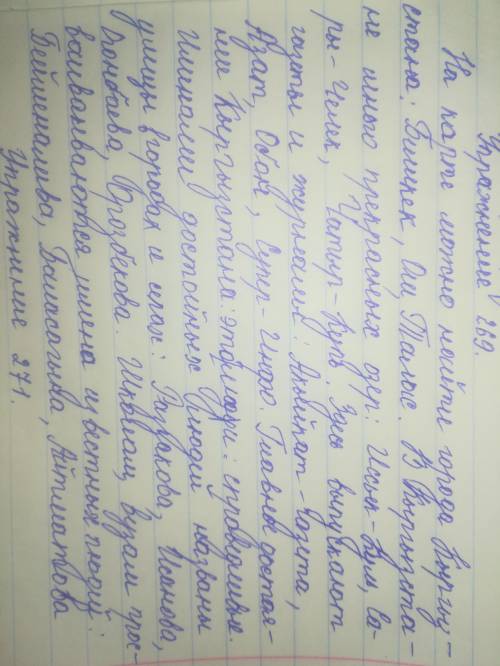 Упражнение 269.
На карте можно найти города Кыргу-
стана: Бишкек, Ош, Талас. В Кыргызста-
не много прекрасных озёр: Иссык-Куль, Са-
ры-Челек, Чатыр-Куль. Здесь выпускают
газеты и журналы: Акыйкат-газета,
Азат, Обон, Супер-Инфо. Главные достоя-
ние Кыргызстана: это люди: справедливые.
Именами достойных людей названы
улицы в городах и сёлах: Раззакова, Ионова,
Боконбаева, Уразбекова. Школам, вузам прис-
ваиваваются имена известных людей:
Бейшеналиева, Баласагына, Айтматова
Упражнение 271.